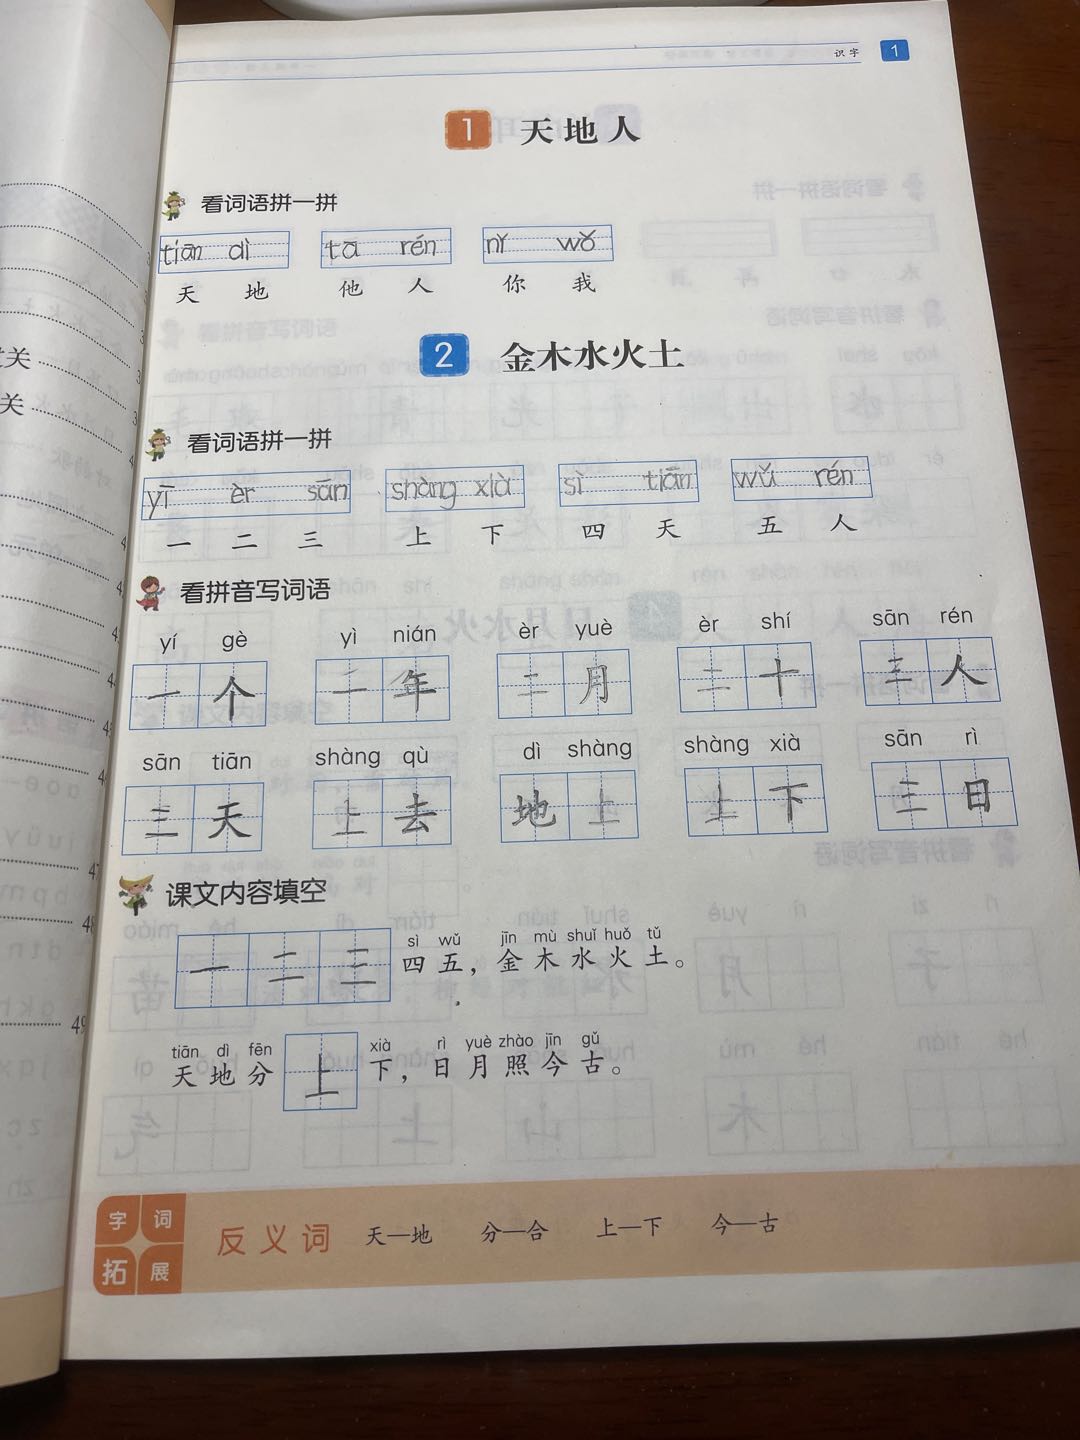 识字 1
1 天地人
看词语拼一拼
tiān dì tā rén nǐ wǒ
天 地 他 人 你 我
2 金木水火土
看词语拼一拼
yī èr sān shàng xià sì tiān wǔ rén
一 二 三 上 下 四 天 五 人
看拼音写词语
yí gè yì nián èr yuè èr shí sān rén
一个 二年 二月 二十 三人
sān tiān shàng qù dì shàng shàng xià sān rì
三天 上去 地上 上下 三日
课文内容填空
sì wǔ jīn mù shuǐ huǒ tǔ
一二三四五，金木水火土。
tiān dì fēn xià rì yuè zhào jīn gǔ
天地分上下，日月照今古。
字词拓展 反义词 天—地 分—合 上—下 今—古
过关
关